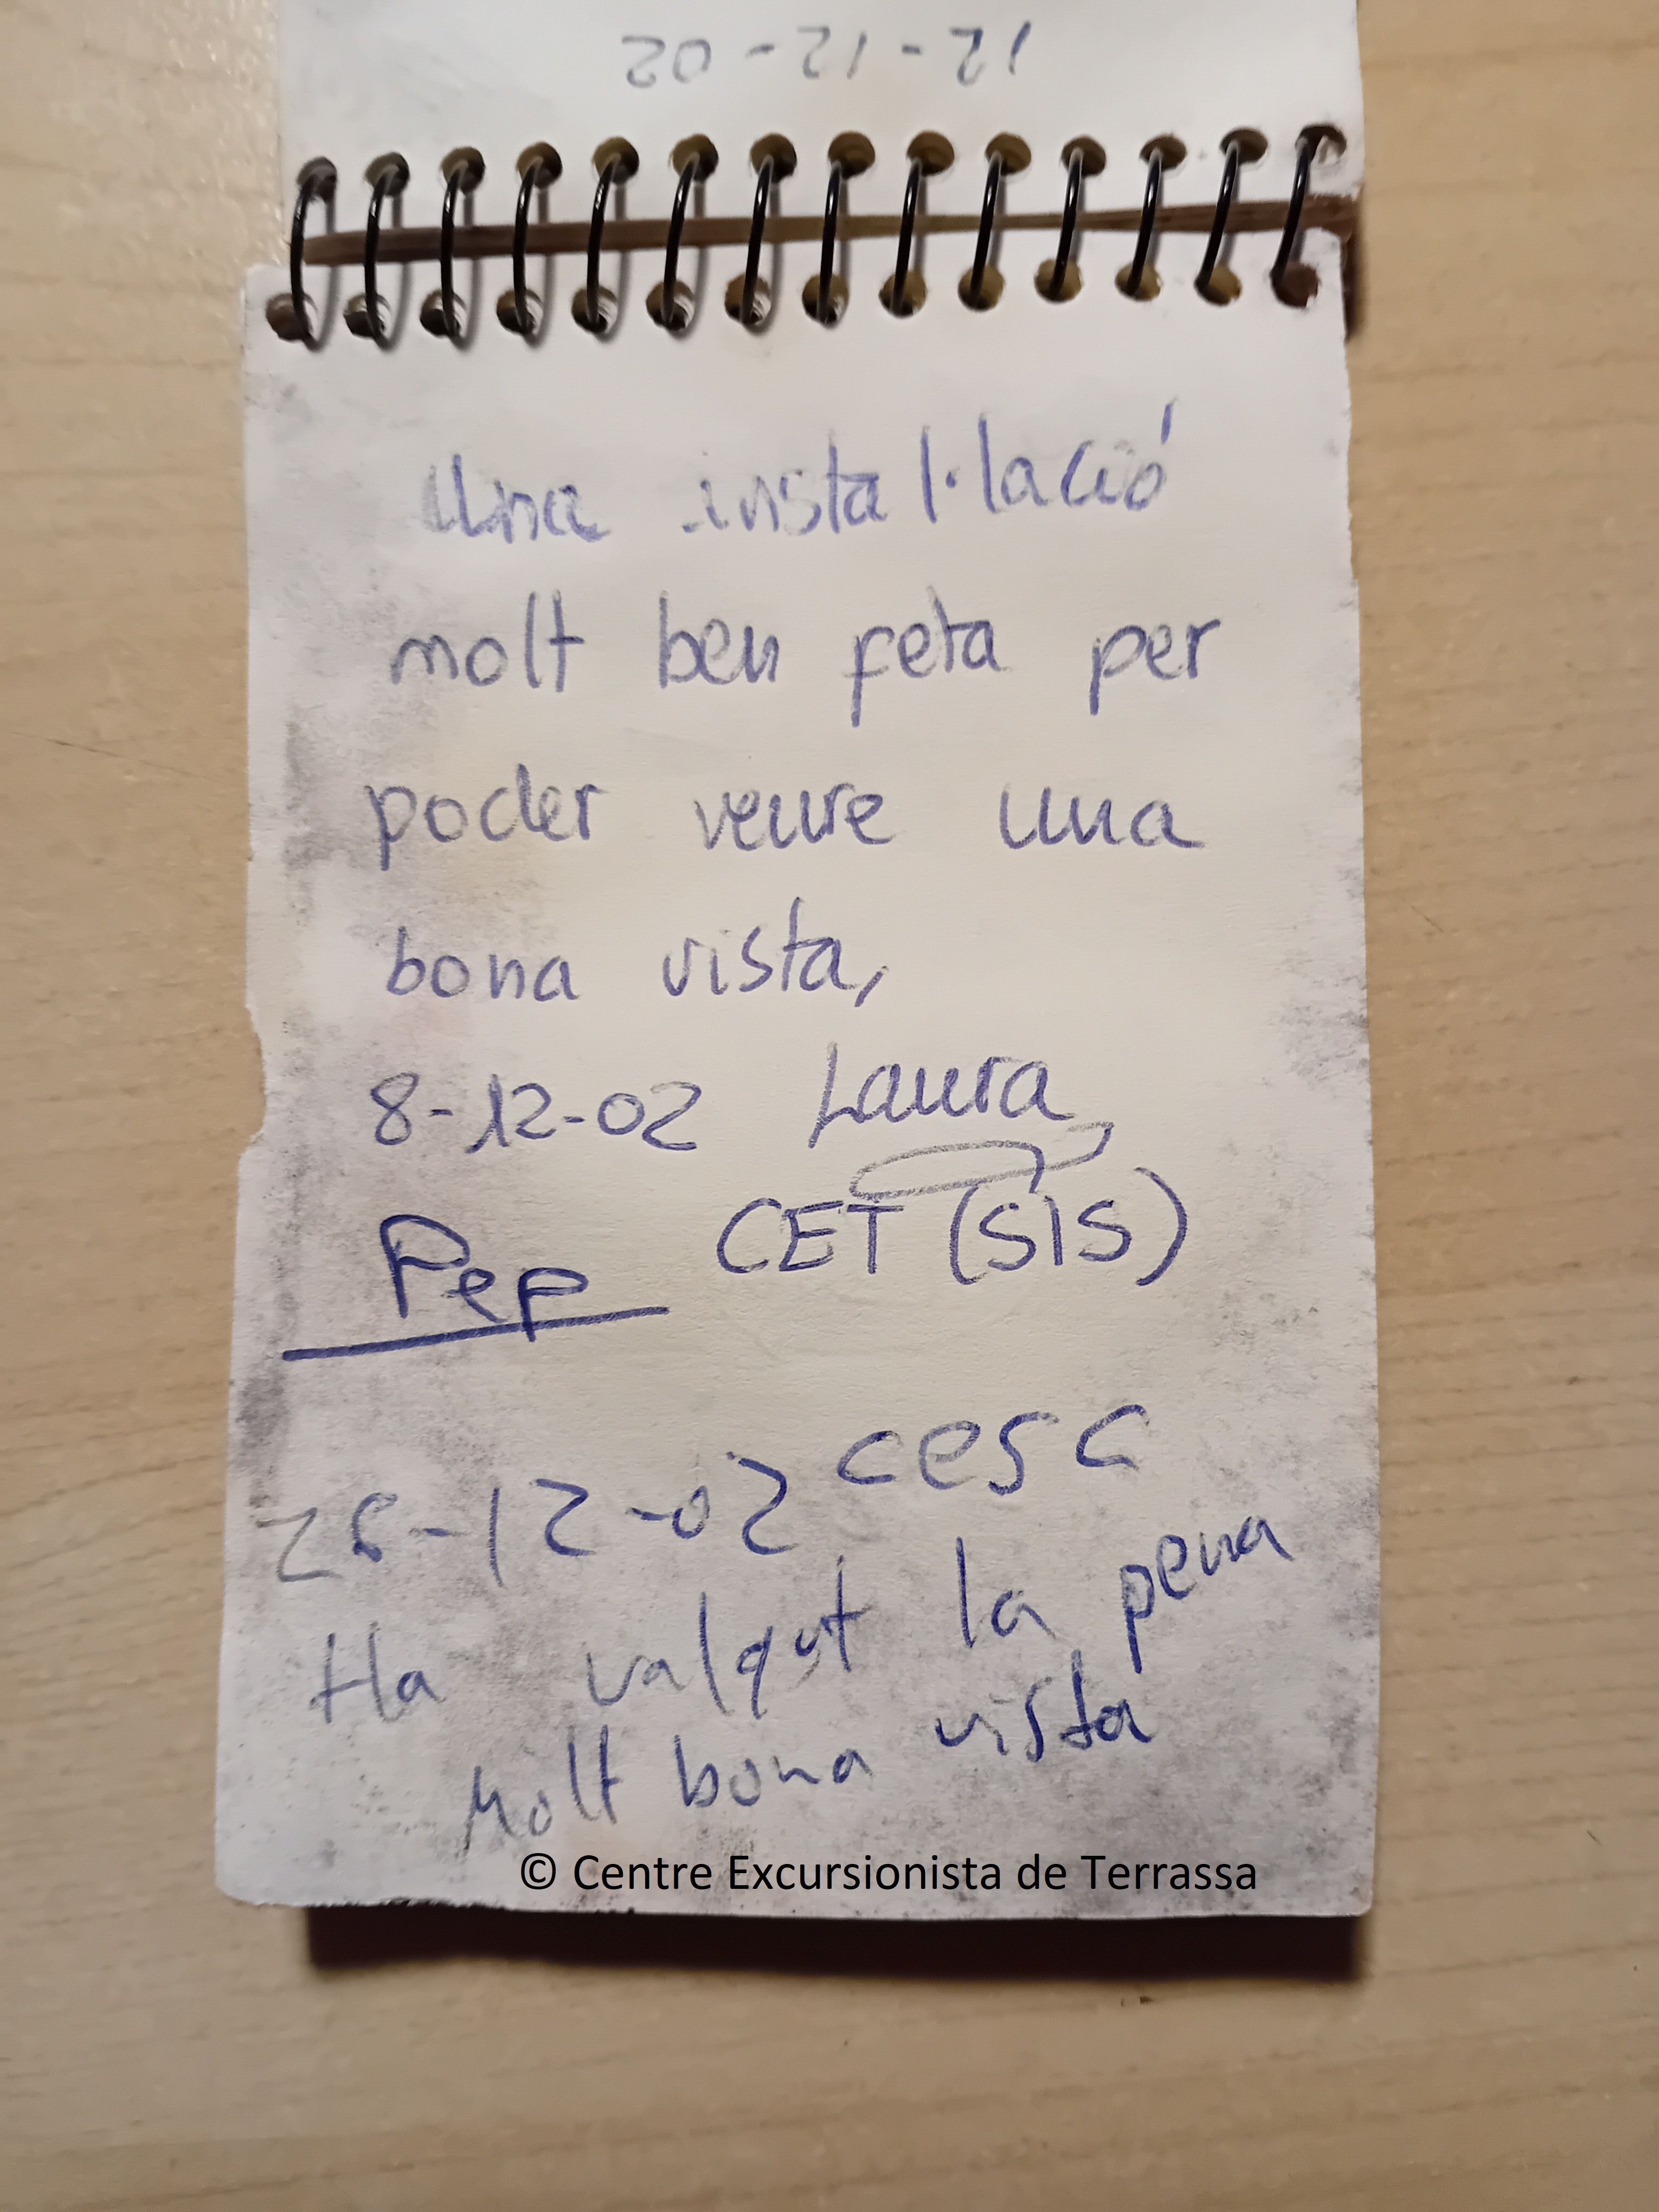 12-12-02
Una instal·lació
molt ben feta per
poder veure una
bona vista,
8-12-02 Laura
Pep CET (SIS)
cesc
26-12-02
Ha valgut la pena
Molt bona vista
© Centre Excursionista de Terrassa